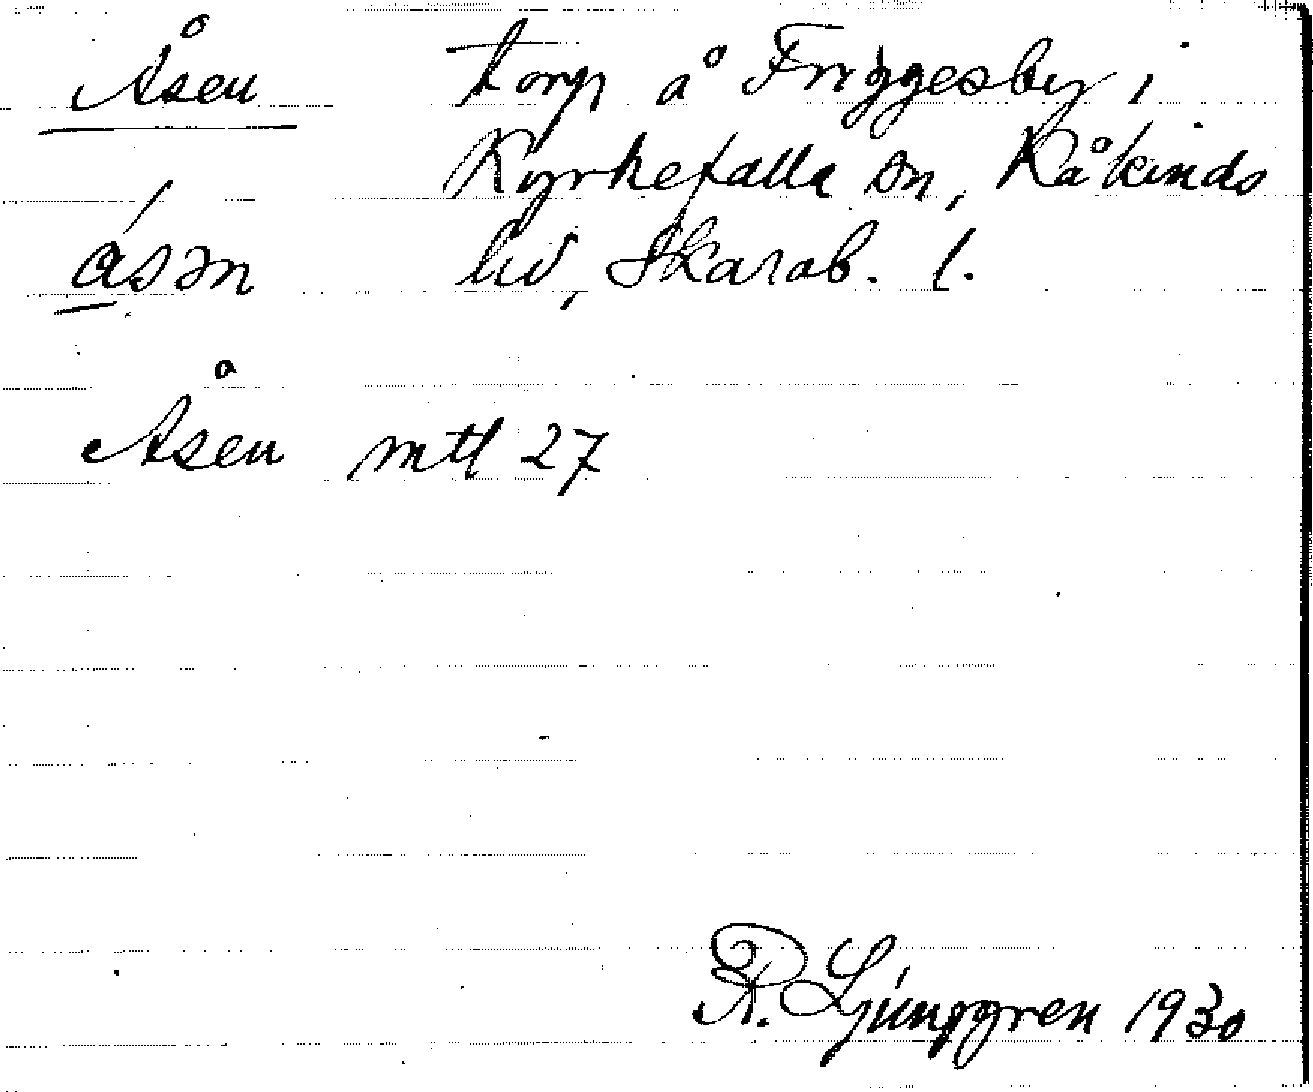 Åsen torp å Friggesby i
Kyrkefalla sn, Kåkinds
ásən hd, Skarab. l.
Åsen mtl 27
R. Ljunggren 1930